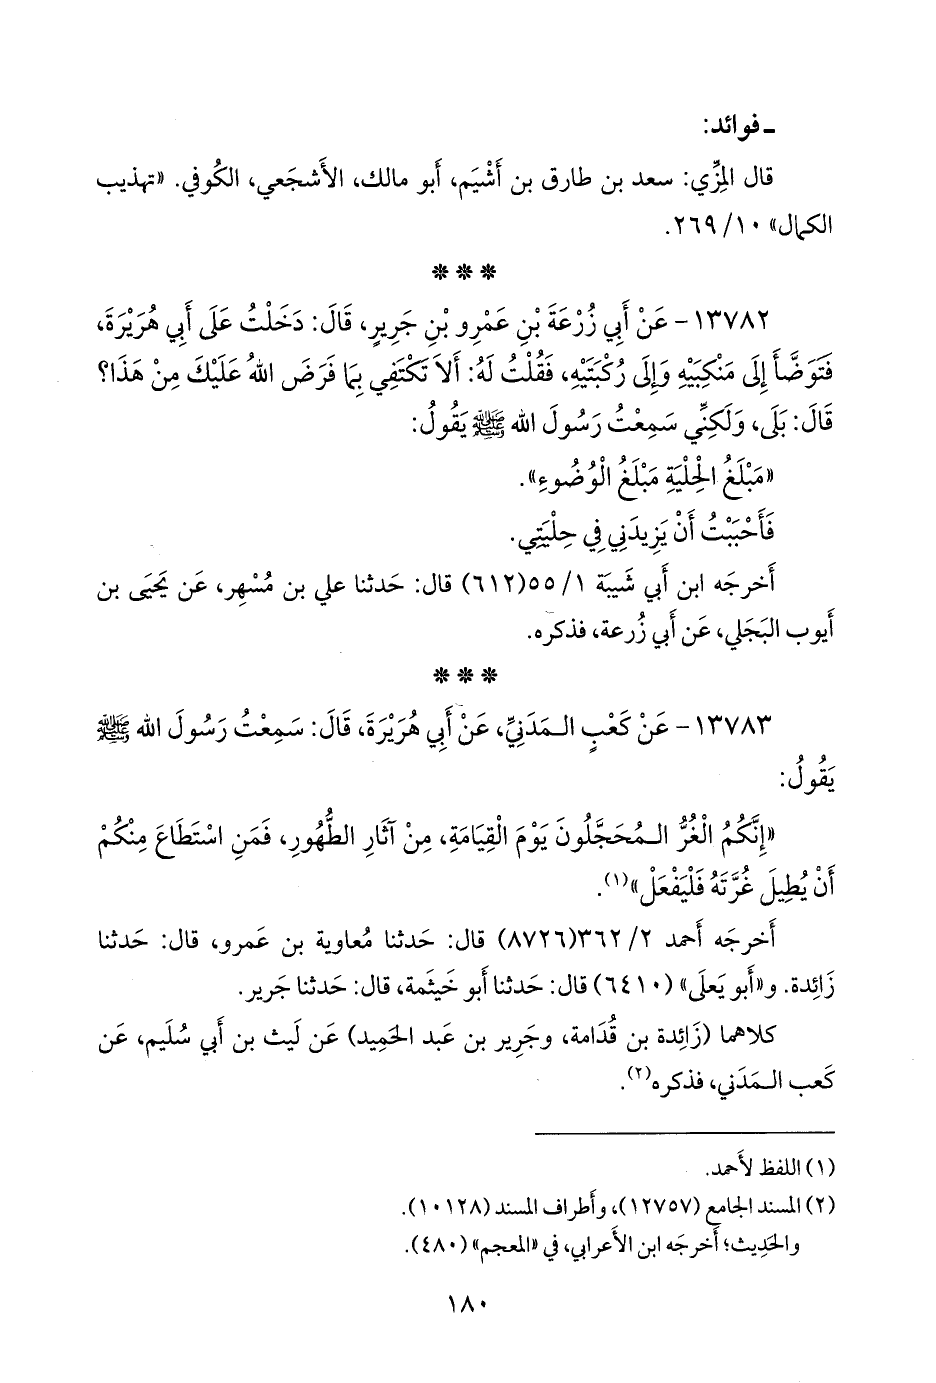 ـ فوائد:
قال المِزِّي: سعد بن طارق بن أَشْيَم، أَبو مالك، الأَشجَعي، الكُوفي. «تهذيب
الكمال» ١٠/ ٢٦٩.
❊ ❊ ❊
١٣٧٨٢- عَنْ أَبِي زُرْعَةَ بْنِ عَمْرِو بْنِ جَرِيرٍ، قَالَ: دَخَلْتُ عَلَى أَبِي هُرَيْرَةَ،
فَتَوَضَّأَ إِلَى مَنْكِبَيْهِ وَإِلَى رُكْبَتَيْهِ، فَقُلْتُ لَهُ: أَلاَ تَكْتَفِي بِمَا فَرَضَ اللهُ عَلَيْكَ مِنْ هَذَا؟
قَالَ: بَلَى، وَلَكِنِّي سَمِعْتُ رَسُولَ الله ﷺ يَقُولُ:
«مَبْلَغُ الْحِلْيَةِ مَبْلَغُ الْوُضُوءِ».
فَأَحْبَبْتُ أَنْ يَزِيدَنِي فِي حِلْيَتِي.
أَخرجَه ابن أَبي شَيبَة ١/ ٥٥(٦١٢) قال: حَدثنا علي بن مُسْهِر، عَن يَحيَى بن
أَيوب البَجَلي، عَن أَبي زُرعة، فذكره.
❊ ❊ ❊
١٣٧٨٣- عَنْ كَعْبٍ الـمَدَنِيِّ، عَنْ أَبِي هُرَيْرَةَ، قَالَ: سَمِعْتُ رَسُولَ الله ﷺ
يَقُولُ:
«إِنَّكُمُ الْغُرُّ الـمُحَجَّلُونَ يَوْمَ الْقِيَامَةِ، مِنْ آثَارِ الطُّهُورِ، فَمَنِ اسْتَطَاعَ مِنْكُمْ
أَنْ يُطِيلَ غُرَّتَهُ فَلْيَفْعَلْ»(١).
أَخرجَه أَحمد ٢/ ٣٦٢(٨٧٢٦) قال: حَدثنا مُعاوية بن عَمرو، قال: حَدثنا
زَائِدة. و«أَبو يَعلَى» (٦٤١٠) قال: حَدثنا أَبو خَيثَمة، قال: حَدثنا جَرير.
كلاهما (زَائِدة بن قُدَامة، وجَرير بن عبد الحَمِيد) عَن لَيث بن أَبي سُلَيم، عَن
كَعب الـمَدَني، فذكره(٢).
(١) اللفظ لأَحمد.
(٢) المسند الجامع (١٢٧٥٧)، وأَطراف المسند (١٠١٢٨).
والحَدِيث؛ أَخرجَه ابن الأَعرابي، في «المعجم» (٤٨٠).
١٨٠